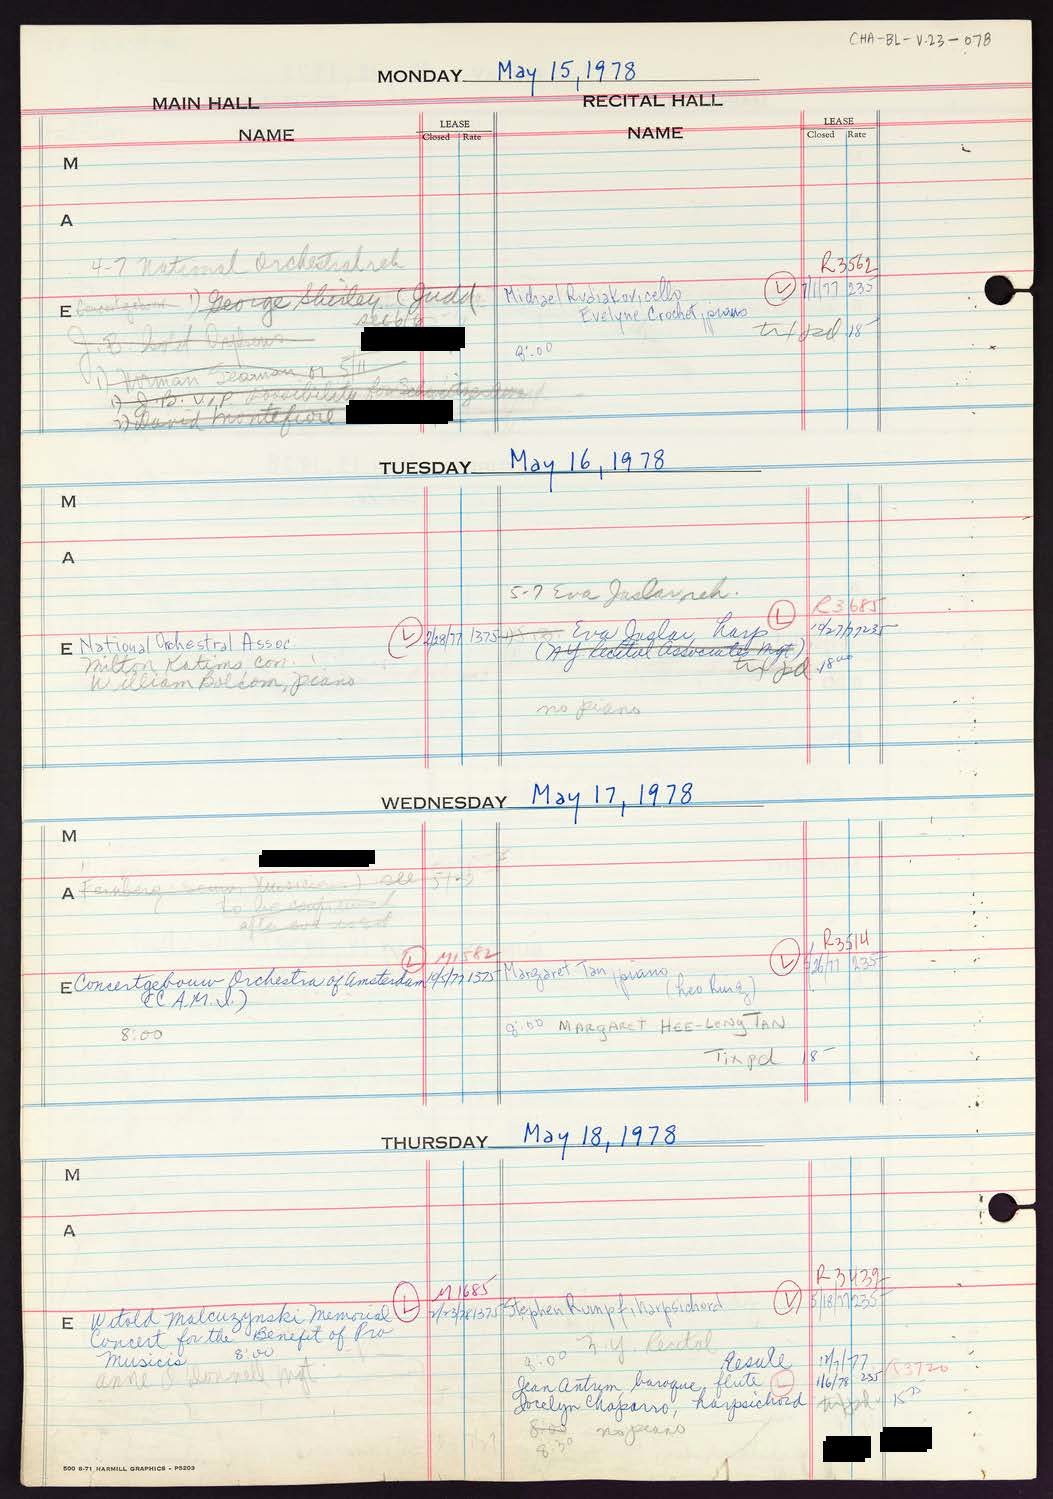 CHA-BL-V.23-078
MONDAY May 15, 1978
MAIN HALL
RECITAL HALL
NAME
LEASE
Closed Rate
NAME
LEASE
Closed Rate
M
A
4-7 National Orchestral reh
R3562
E
1) George Shirley (Judd
Michael Rudiakov, cello
L 7/1/77 235
Evelyne Crochet, piano
tix pd 18-
J.B.
8:00
1) Norman Seaman or 5/11
1) J.B. V.I.P. Possibility for
2) David Montefiore
TUESDAY May 16, 1978
M
A
5-7 Eva Jaslar reh.
R3685
E National Orchestral Assoc.
L 2/28/77 1375
Eva Jaslar, harp
L 10/27/77 235
Milton Katims con.
(NY Recital Associates Mgt)
William Bolcom, piano
tix pd 18.00
no piano
WEDNESDAY May 17, 1978
M
A
see 5/23
to be confirmed
after
M1582
R3514
E Concertgebouw Orchestra of Amsterdam
L 10/5/77 1375
Margaret Tan, piano
L 5/26/77 235
(C.A.M.I.)
8:00
8:00 MARGARET HEE-LENG TAN
Tix pd 18-
THURSDAY May 18, 1978
M
A
M1685
R3439
E Witold Malcuzynski Memorial
L 2/23/78 1375
Stephen Rumpf, harpsichord
L 5/18/77 235
Concert for the Benefit of Pro
Musicis 8:00
8:00 N.Y. Recital
Anne O'Donnell Mgt.
Resale 12/7/77
Jean Antrim, baroque flute
L 1/6/78 235 R3720
Jocelyn Chaparro, harpsichord
tix pd
8:00 no piano
8:30
500 8-71 HARMILL GRAPHICS - P5203